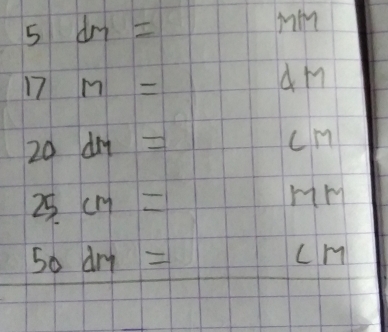 5 dm = mm
17 m = dm
20 dm = cm
25 cm = mm
50 dm = cm